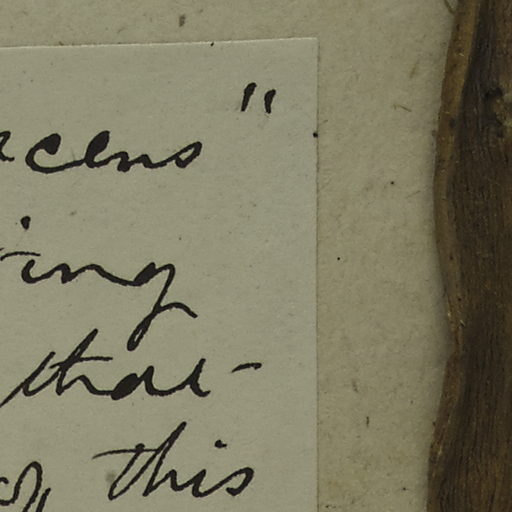 acens"
ing
that
this